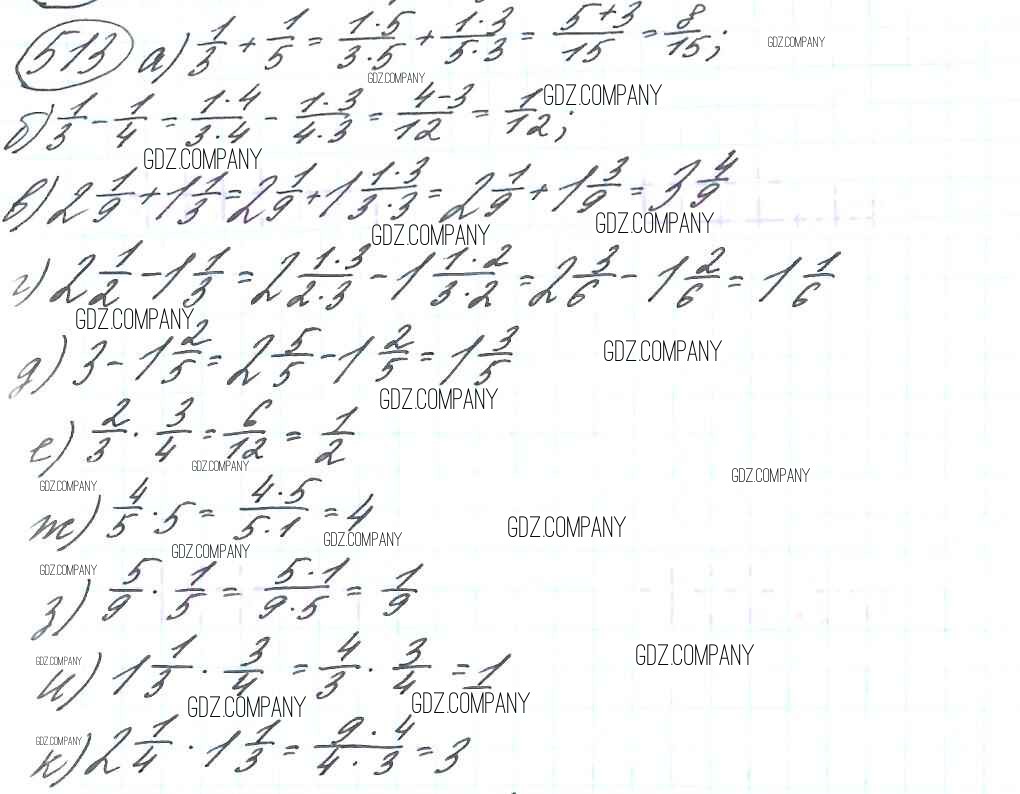 513 а) 1/3 + 1/5 = 1·5/3·5 + 1·3/5·3 = 5+3/15 = 8/15;
GDZ.COMPANY
GDZ.COMPANY
б) 1/3 - 1/4 = 1·4/3·4 - 1·3/4·3 = 4-3/12 = 1/12;
GDZ.COMPANY
GDZ.COMPANY
в) 2 1/9 + 1 1/3 = 2 1/9 + 1 1·3/3·3 = 2 1/9 + 1 3/9 = 3 4/9
GDZ.COMPANY
GDZ.COMPANY
г) 2 1/2 - 1 1/3 = 2 1·3/2·3 - 1 1·2/3·2 = 2 3/6 - 1 2/6 = 1 1/6
GDZ.COMPANY
д) 3 - 1 2/5 = 2 5/5 - 1 2/5 = 1 3/5
GDZ.COMPANY
GDZ.COMPANY
е) 2/3 · 3/4 = 6/12 = 1/2
GDZ.COMPANY
GDZ.COMPANY
GDZ.COMPANY
ж) 4/5 · 5 = 4·5/5·1 = 4
GDZ.COMPANY
GDZ.COMPANY
GDZ.COMPANY
GDZ.COMPANY
з) 5/9 · 1/5 = 5·1/9·5 = 1/9
GDZ.COMPANY
GDZ.COMPANY
и) 1 1/3 · 3/4 = 4/3 · 3/4 = 1
GDZ.COMPANY
GDZ.COMPANY
GDZ.COMPANY
к) 2 1/4 · 1 1/3 = 9·4/4·3 = 3